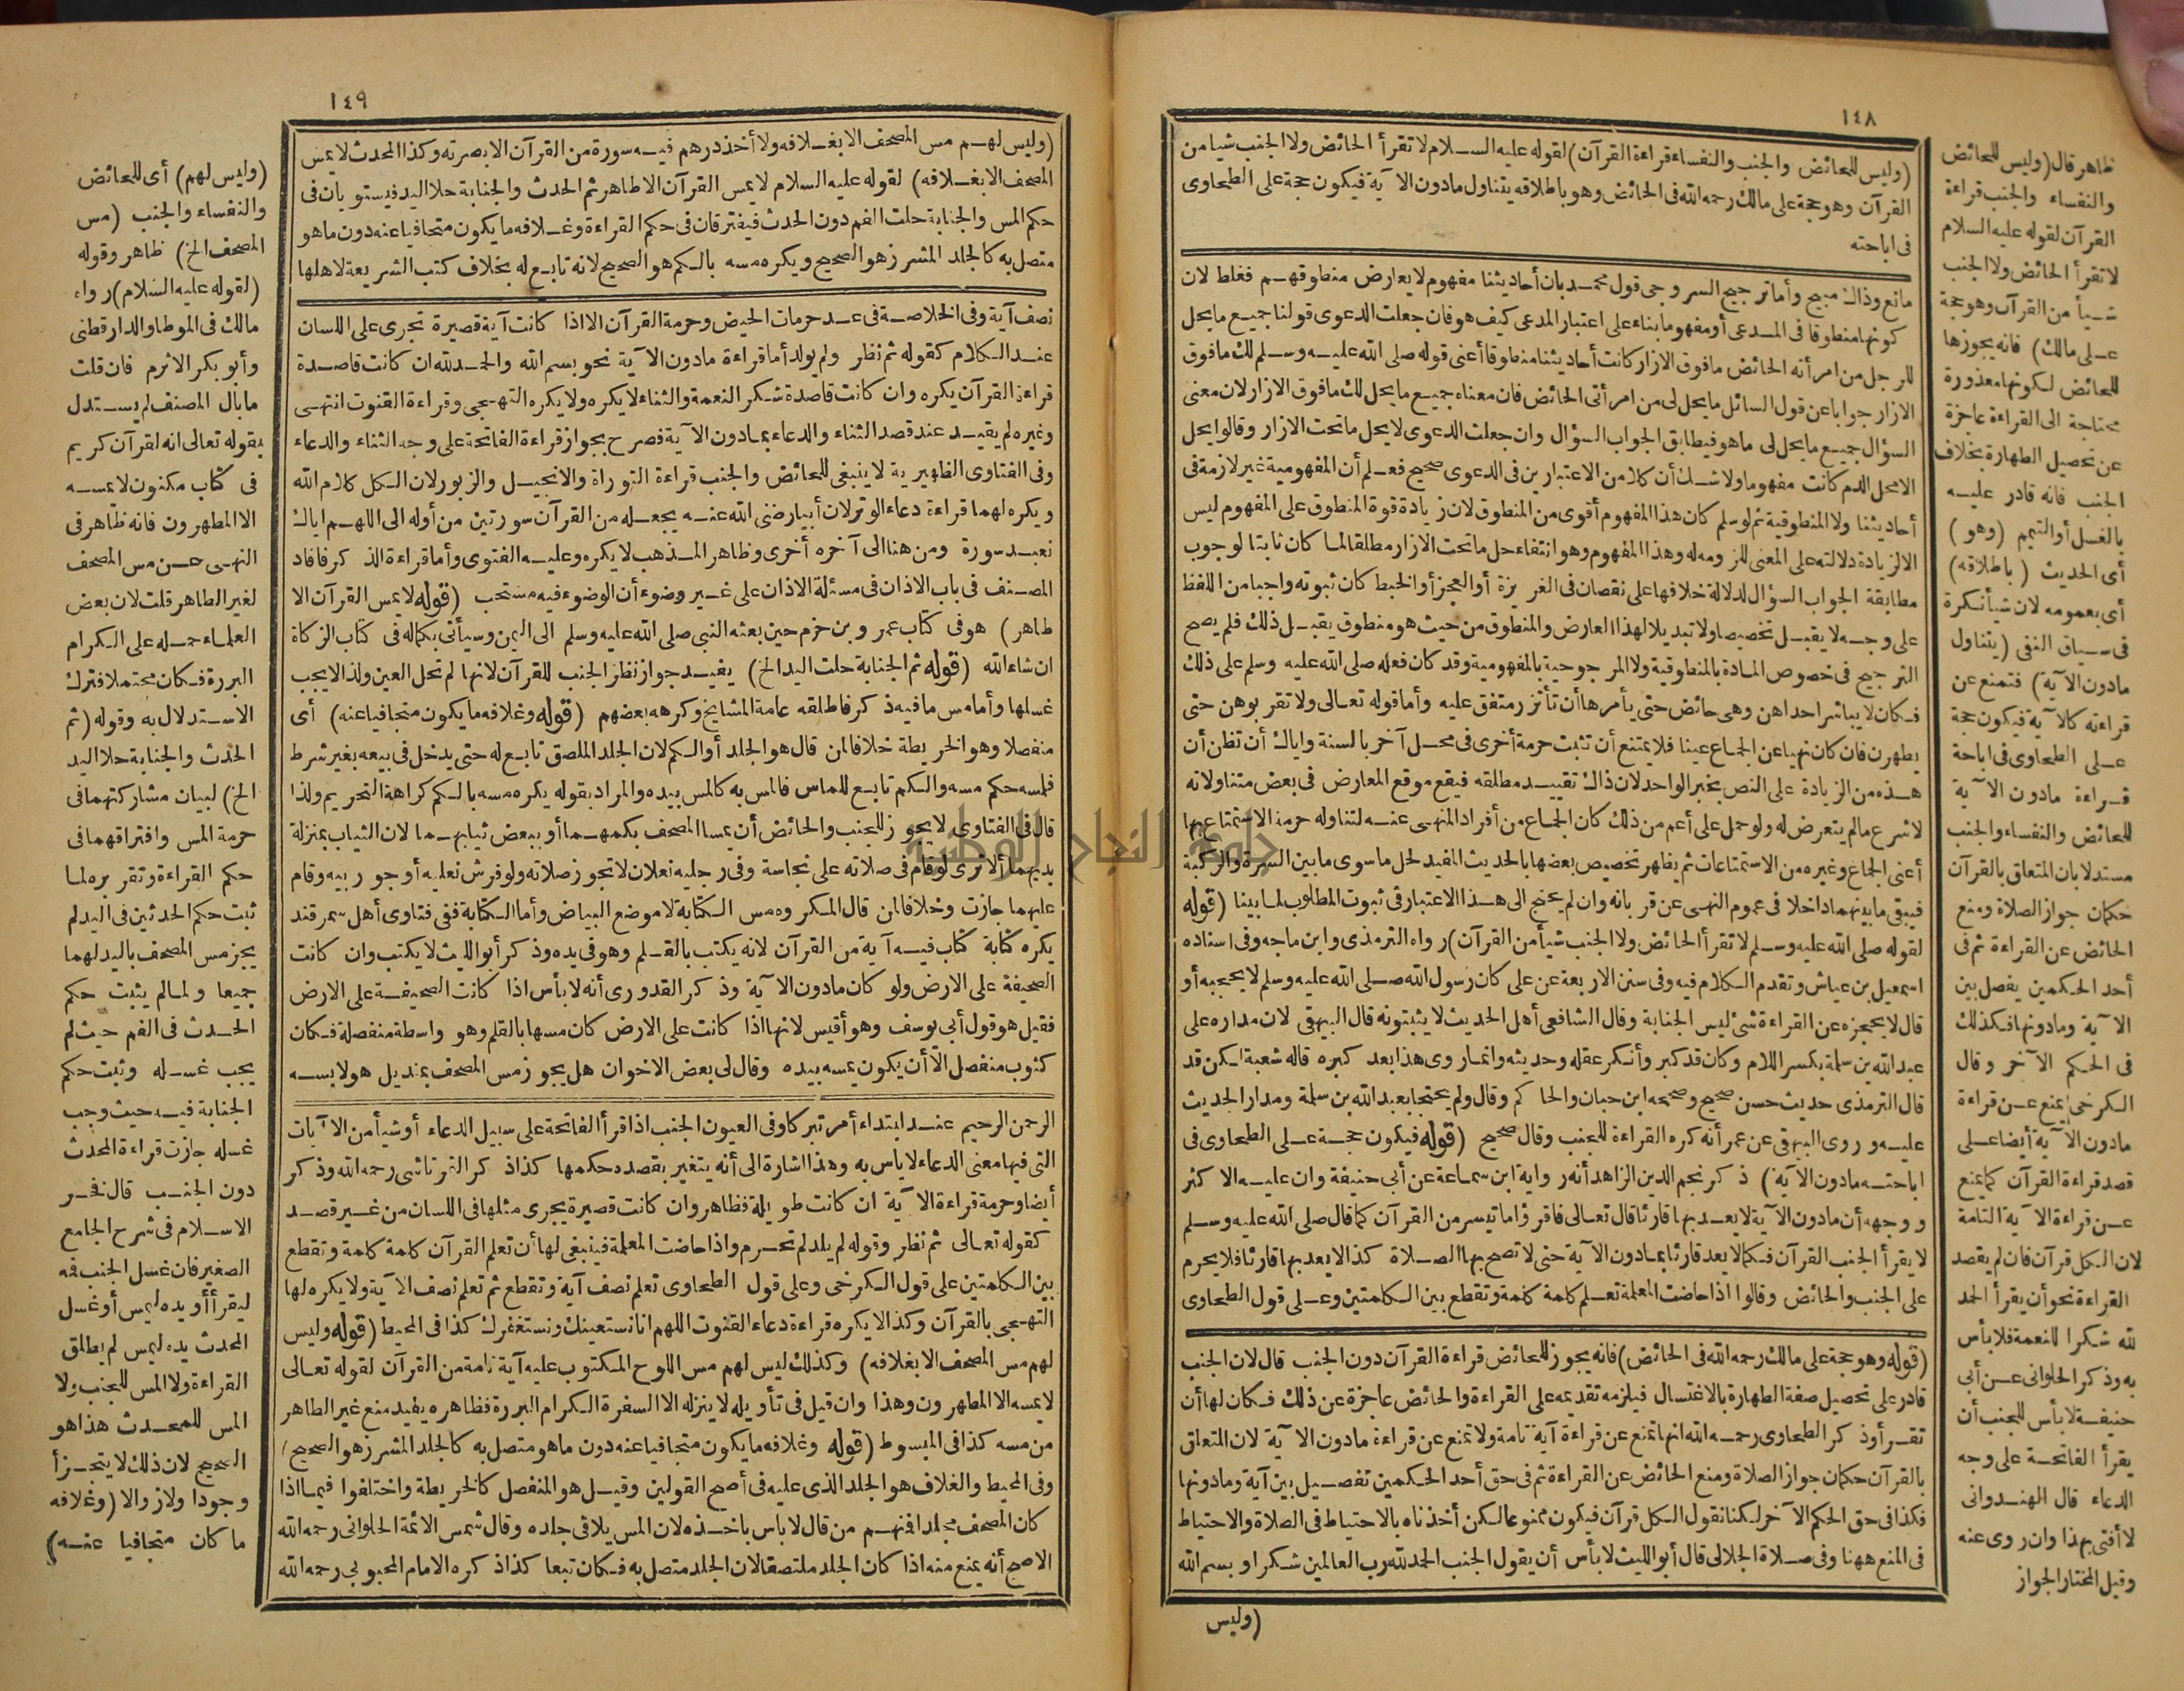 ١٤٨
(وليس للحائض والجنب والنفساء قراءة القرآن) لقوله عليه السلام لا تقرأ الحائض ولا الجنب شيأ من
القرآن وهو حجة على مالك رحمه الله فى الحائض وهو باطلاقه يتناول مادون الآية فيكون حجة على الطحاوى
فى اباحته
مانع وذاك مبيح وأما ترجيح السروجى قول محمد بان أحاديثنا مفهوم لا يعارض منطوقهم فغلط لان
كونها منطوقا فى المدعى أو مفهوما بناء على اعتبار المدعى كيف هو فان جعلت الدعوى قولنا جميع ما يحل
للرجل من امرأته الحائض مافوق الازار كانت أحاديثنا منطوقا أعنى قوله صلى الله عليه وسلم لك مافوق
الازار جوابا عن قول السائل ما يحل لى من امرأتى الحائض فان معناه جميع ما يحل لك مافوق الازار لان معنى
السؤال جميع ما يحل لى ماهو فيطابق الجواب السؤال وان جعلت الدعوى لا يحل ماتحت الازار وقالوا يحل
الا محل الدم كانت مفهوما ولا شك أن كلا من الاعتبارين فى الدعوى صحيح فعلم أن المفهومية غير لازمة فى
أحاديثنا ولا المنطوقية ثم لو سلم كان هذا المفهوم أقوى من المنطوق لان زيادة قوة المنطوق على المفهوم ليس
الا لزيادة دلالته على المعنى للزومه له وهذا المفهوم وهو انتفاء حل ماتحت الازار مطلقا لما كان ثابتا لوجوب
مطابقة الجواب السؤال لدلالة خلافها على نقصان فى الغريزة أو العجز أو الخبط كان ثبوته واجبا من اللفظ
على وجه لا يقبل تخصيصا ولا تبديلا لهذا العارض والمنطوق من حيث هو منطوق يقبل ذلك فلم يصح
الترجيح فى خصوص المادة بالمنطوقية ولا المرجوحية بالمفهومية وقد كان فعله صلى الله عليه وسلم على ذلك
فكان لا يباشر احداهن وهى حائض حتى يأمرها أن تأتزر متفق عليه وأما قوله تعالى ولا تقربوهن حتى
يطهرن فان كان نهيا عن الجماع عينا فلا يمتنع أن تثبت حرمة أخرى فى محل آخر بالسنة واياك أن تظن أن
هذه من الزيادة على النص بخبر الواحد لان ذاك تقييد مطلقه فيقع موقع المعارض فى بعض متناولاته
لا شرع مالم يتعرض له ولو حمل على أعم من ذلك كان الجماع من أفراد المنهى عنه لتناوله حرمة الاستمتاع بها
أعنى الجماع وغيره من الاستمتاعات ثم يظهر تخصيص بعضها بالحديث المفيد لحل ماسوى مابين السرة والركبة
فيبقى مابينهما داخلا فى عموم النهى عن قربانه وان لم يحتج الى هذا الاعتبار فى ثبوت المطلوب لما بينا (قوله
لقوله صلى الله عليه وسلم لا تقرأ الحائض ولا الجنب شيأ من القرآن) رواه الترمذى وابن ماجه وفى اسناده
اسمعيل بن عياش وتقدم الكلام فيه وفى سنن الاربعة عن على كان رسول الله صلى الله عليه وسلم لا يحجبه أو
قال لا يحجزه عن القراءة شئ ليس الجنابة وقال الشافعى أهل الحديث لا يثبتونه قال البيهقى لان مداره على
عبد الله بن سلمة بكسر اللام وكان قد كبر وأنكر عقله وحديثه وانما روى هذا بعد كبره قاله شعبة لكن قد
قال الترمذى حديث حسن صحيح وصححه ابن حبان والحاكم وقال ولم يحتجا بعبد الله بن سلمة ومدار الحديث
عليه وروى البيهقى عن عمر أنه كره القراءة للجنب وقال صحيح (قوله فيكون حجة على الطحاوى فى
اباحته مادون الآية) ذكر نجم الدين الزاهد أنه رواية ابن سماعة عن أبى حنيفة وان عليه الاكثر
ووجهه أن مادون الآية لا يعد بها قارئا قال تعالى فاقرؤا ماتيسر من القرآن كما قال صلى الله عليه وسلم
لا يقرأ الجنب القرآن فكما لا يعد قارئا بمادون الآية حتى لا تصح بها الصلاة كذا لا يعد بها قارئا فلا يحرم
على الجنب والحائض وقالوا اذا حاضت المعلمة تعلم كلمة كلمة وتقطع بين الكلمتين وعلى قول الطحاوى
(قوله وهو حجة على مالك رحمه الله فى الحائض) فانه يجوز للحائض قراءة القرآن دون الجنب قال لان الجنب
قادر على تحصيل صفة الطهارة بالاغتسال فيلزمه تقديمه على القراءة والحائض عاجزة عن ذلك فكان لها أن
تقرأ وذكر الطحاوى رحمه الله انها تمنع عن قراءة آية تامة ولا تمنع عن قراءة مادون الآية لان المتعلق
بالقرآن حكمان جواز الصلاة ومنع الحائض عن القراءة ثم فى حق أحد الحكمين تفصيل بين آية ومادونها
فكذا فى حق الحكم الآخر لكنا نقول الكل قرآن فيكون ممنوعا لكن أخذناه بالاحتياط فى الصلاة والاحتياط
فى المنع ههنا وفى صلاة الجلالى قال أبو الليث لا بأس أن يقول الجنب الحمد لله رب العالمين شكرا وبسم الله
(وليس
ظاهر قال (وليس للحائض
والنفساء والجنب قراءة
القرآن لقوله عليه السلام
لا تقرأ الحائض ولا الجنب
شيأ من القرآن وهو حجة
على مالك) فانه يجوزها
للحائض لكونها معذورة
محتاجة الى القراءة عاجزة
عن تحصيل الطهارة بخلاف
الجنب فانه قادر عليه
بالغسل أو التيمم (وهو)
أى الحديث (باطلاقه)
أى بعمومه لان شيأ نكرة
فى سياق النفى (يتناول
مادون الآية) فتمنع عن
قراءته كالآية فيكون حجة
على الطحاوى فى اباحة
قراءة مادون الآية
للحائض والنفساء والجنب
مستدلا بان المتعلق بالقرآن
حكمان جواز الصلاة ومنع
الحائض عن القراءة ثم فى
أحد الحكمين يفصل بين
الآية ومادونها فكذلك
فى الحكم الآخر وقال
الكرخى يمنع عن قراءة
مادون الآية أيضا على
قصد قراءة القرآن كما يمنع
عن قراءة الآية التامة
لان الكل قرآن فان لم يقصد
القراءة نحو أن يقرأ الحمد
لله شكرا للنعمة فلا بأس
به وذكر الحلوانى عن أبى
حنيفة لا بأس للجنب أن
يقرأ الفاتحة على وجه
الدعاء قال الهندوانى
لا أفتى بهذا وان روى عنه
وقيل المختار الجواز
١٤٩
(وليس لهم مس المصحف الا بغلافه ولا أخذ درهم فيه سورة من القرآن الا بصرته وكذا المحدث لا يمس
المصحف الا بغلافه) لقوله عليه السلام لا يمس القرآن الا طاهر ثم الحدث والجنابة حلا اليد فيستويان فى
حكم المس والجنابة حلت الفم دون الحدث فيفترقان فى حكم القراءة وغلافه ما يكون متجافيا عنه دون ماهو
متصل به كالجلد المشرز هو الصحيح ويكره مسه بالكم هو الصحيح لانه تابع له بخلاف كتب الشريعة لاهلها
نصف آية وفى الخلاصة فى عد حرمات الحيض وحرمة القرآن الا اذا كانت آية قصيرة تجرى على اللسان
عند الكلام كقوله ثم نظر ولم يولد أما قراءة مادون الآية نحو بسم الله والحمد لله ان كانت قاصدة
قراءة القرآن يكره وان كانت قاصدة شكر النعمة والثناء لا يكره ولا يكره التهجى وقراءة القنوت انتهى
وغيره لم يقيد عند قصد الثناء والدعاء بمادون الآية فصرح بجواز قراءة الفاتحة على وجه الثناء والدعاء
وفى الفتاوى الظهيرية لا ينبغى للحائض والجنب قراءة التوراة والانجيل والزبور لان الكل كلام الله
ويكره لهما قراءة دعاء الوتر لان أبيا رضى الله عنه يجعله من القرآن سورتين من أوله الى اللهم اياك
نعبد سورة ومن هنا الى آخره أخرى وظاهر المذهب لا يكره وعليه الفتوى وأما قراءة الذكر فافاد
المصنف فى باب الاذان فى مسئلة الاذان على غير وضوء أن الوضوء فيه مستحب (قوله لا يمس القرآن الا
طاهر) هو فى كتاب عمرو بن حزم حين بعثه النبى صلى الله عليه وسلم الى اليمن وسيأتى بكماله فى كتاب الزكاة
ان شاء الله (قوله ثم الجنابة حلت اليد الخ) يفيد جواز نظر الجنب للقرآن لانها لم تحل العين ولذا لا يجب
غسلها وأما مس مافيه ذكر فاطلقه عامة المشايخ وكرهه بعضهم (قوله وغلافه ما يكون متجافيا عنه) أى
منفصلا وهو الخريطة خلافا لمن قال هو الجلد أو الكم لان الجلد الملصق تابع له حتى يدخل فى بيعه بغير شرط
فلمسه حكم مسه والكم تابع للماس فالمس به كالمس بيده والمراد بقوله يكره مسه بالكم كراهة التحريم ولذا
قال فى الفتاوى لا يجوز للجنب والحائض أن يمسا المصحف بكمهما أو ببعض ثيابهما لان الثياب بمنزلة
يديهما ألا ترى لو قام فى صلاته على نجاسة وفى رجليه نعلان لا تجوز صلاته ولو فرش نعليه أو جوربيه وقام
عليهما جازت وخلافا لمن قال المكروه مس الكتابة لا موضع البياض وأما الكتابة ففى فتاوى أهل سمرقند
يكره كتابة كتاب فيه آية من القرآن لانه يكتب بالقلم وهو فى يده وذكر أبو الليث لا يكتب وان كانت
الصحيفة على الارض ولو كان مادون الآية وذكر القدورى أنه لا بأس اذا كانت الصحيفة على الارض
فقيل هو قول أبى يوسف وهو أقيس لانها اذا كانت على الارض كان مسها بالقلم وهو واسطة منفصلة فكان
كثوب منفصل الا أن يكون يمسه بيده وقال لى بعض الاخوان هل يجوز مس المصحف بمنديل هو لابسه
الرحمن الرحيم عند ابتداء أمر تبركا وفى العيون الجنب اذا قرأ الفاتحة على سبيل الدعاء أو شيأ من الآيات
التى فيها معنى الدعاء لا باس به وهذا اشارة الى أنه يتغير بقصده حكمها كذا ذكر التمرتاشى رحمه الله وذكر
أيضا وحرمة قراءة الآية ان كانت طويلة فظاهر وان كانت قصيرة يجرى مثلها فى اللسان من غير قصد
كقوله تعالى ثم نظر وقوله لم يلد لم تحرم واذا حاضت المعلمة فينبغى لها أن تعلم القرآن كلمة كلمة وتقطع
بين الكلمتين على قول الكرخى وعلى قول الطحاوى تعلم نصف آية وتقطع ثم تعلم نصف الآية ولا يكره لها
التهجى بالقرآن وكذا لا يكره قراءة دعاء القنوت اللهم انا نستعينك ونستغفرك كذا فى المحيط (قوله وليس
لهم مس المصحف الا بغلافه) وكذلك ليس لهم مس اللوح المكتوب عليه آية تامة من القرآن لقوله تعالى
لا يمسه الا المطهرون وهذا وان قيل فى تأويله لا ينزله الا السفرة الكرام البررة فظاهره يفيد منع غير الطاهر
من مسه كذا فى المبسوط (قوله وغلافه ما يكون متجافيا عنه دون ماهو متصل به كالجلد المشرز هو الصحيح)
وفى المحيط والغلاف هو الجلد الذى عليه فى أصح القولين وقيل هو المنفصل كالخريطة واختلفوا فيما اذا
كان المصحف مجلدا فمنهم من قال لا باس باخذه لان المس يلاقى جلده وقال شمس الائمة الحلوانى رحمه الله
الاصح أنه يمنع منه اذا كان الجلد ملتصقا لان الجلد متصل به فكان تبعا كذا ذكره الامام المحبوبى رحمه الله
(وليس لهم) أى للحائض
والنفساء والجنب (مس
المصحف الخ) ظاهر وقوله
(لقوله عليه السلام) رواه
مالك فى الموطا والدارقطنى
وأبو بكر الاثرم فان قلت
مابال المصنف لم يستدل
بقوله تعالى انه لقرآن كريم
فى كتاب مكنون لا يمسه
الا المطهرون فانه ظاهر فى
النهى عن مس المصحف
لغير الطاهر قلت لان بعض
العلماء حمله على الكرام
البررة فكان محتملا فترك
الاستدلال به وقوله (ثم
الحدث والجنابة حلا اليد
الخ) لبيان مشاركتهما فى
حرمة المس وافتراقهما فى
حكم القراءة وتقريره لما
ثبت حكم الحدثين فى اليد لم
يجز مس المصحف باليد لهما
جميعا ولما لم يثبت حكم
الحدث فى الفم حيث لم
يجب غسله وثبت حكم
الجنابة فيه حيث وجب
غسله جازت قراءة المحدث
دون الجنب قال فخر
الاسلام فى شرح الجامع
الصغير فان غسل الجنب فه
ليقرأ أو يده ليمس أو غسل
المحدث يده ليمس لم يطلق
القراءة ولا المس للجنب ولا
المس للمحدث هذا هو
الصحيح لان ذلك لا يتجزأ
وجودا ولا زوالا (وغلافه
ما كان متجافيا عنه)
جامعة النجاح الوطنية